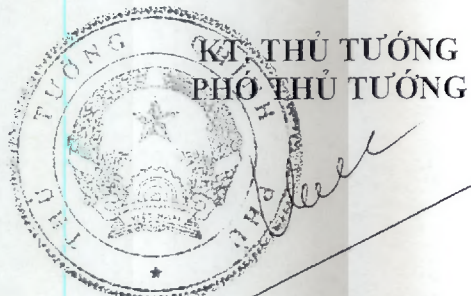 KT. THỦ TƯỚNG
PHÓ THỦ TƯỚNG
THỦ TƯỚNG CHÍNH PHỦ